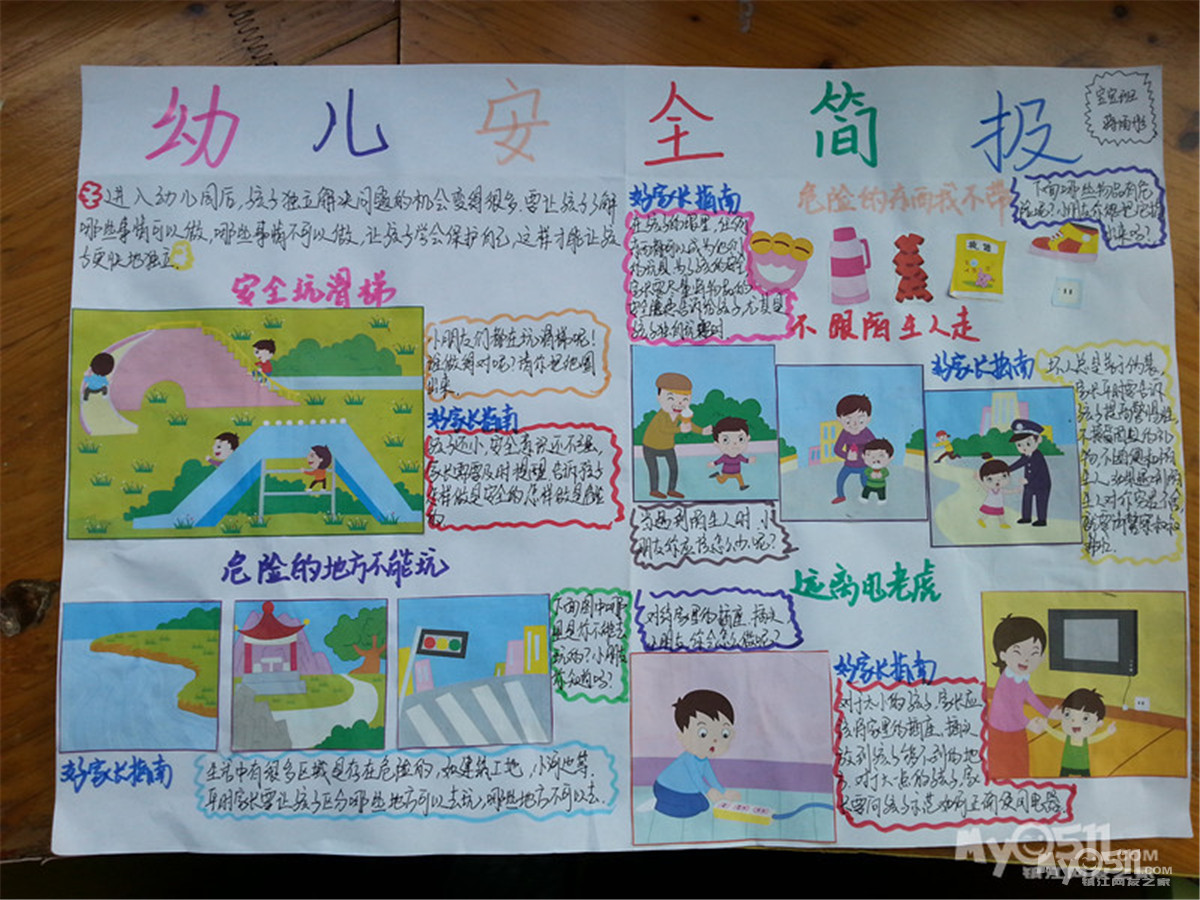 幼儿安全简报
宝宝班
进入幼儿园后,孩子独立解决问题的机会变得很多.要让孩子了解
哪些事情可以做,哪些事情不可以做,让孩子学会保护自己,这样才能让孩
子更快地独立.
安全玩滑梯
小朋友们都在玩滑梯呢!
谁做得对呢?请你把他圈
出来.
好家长指南
孩子还小,安全意识还不强,
家长需要及时提醒,告诉孩子
怎样做是安全的,怎样做是危险
的
危险的地方不能玩
下面图中哪
里是你不能去
玩的?小朋友
你知道吗?
好家长指南
生活中有很多区域是存在危险的,如建筑工地,小河边等.
平时家长要让孩子区分哪些地方可以去玩,哪些地方不可以去.
好家长指南
在孩子的眼里,任何
东西都可以成为他们
的玩具,为了孩子的安全
孩子独自玩耍时
危险的东西我不带
下面哪些物品有危
险呢?小朋友你能把它们找
出来吗?
不跟陌生人走
当遇到陌生人时,小
朋友你应该怎么办呢?
好家长指南
坏人总是善于伪装,
家长平时要告诉
孩子提高警惕性,
不要随便吃陌
生人
远离电老虎
对待家里的插座、插头
小朋友,你会怎么做呢?
好家长指南
对于太小的孩子,家长应
该将家里的插座、插头
放到孩子够不到的地
方.对于大点的孩子,家
长要向孩子示范如何正确使用电器.
My0511.COM
镇江网友之家
My0511.COM
镇江网友之家